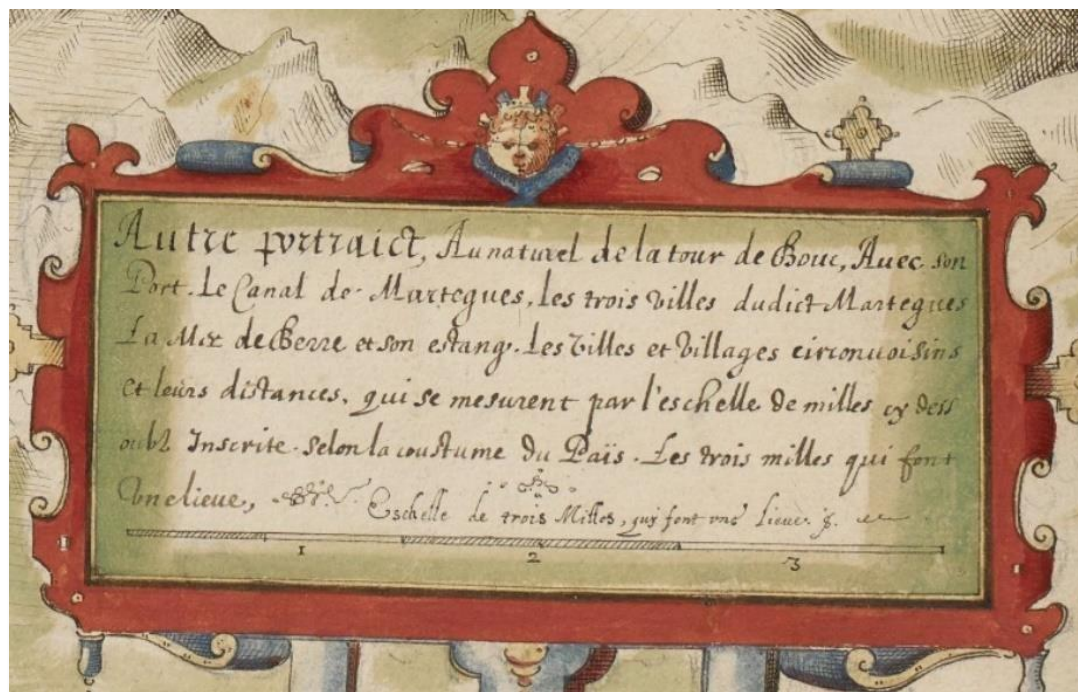 Autre portraict, Au naturel de la tour de Bouc, Avec son
Port. Le Canal de Martegues, les trois villes dudict Martegues
La Mer de Berre et son estang. Les villes et villages circonuoisins
et leurs distances, qui se mesurent par l'eschelle de milles cy dess
oubz Inscrite. Selon la coustume du Païs. Les trois milles qui font
Vne lieue,
Eschelle de trois Milles, qui font vne Lieue.
1 2 3